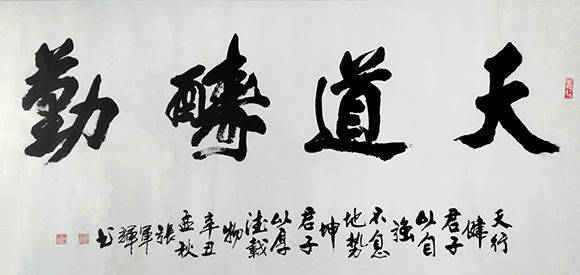 天道醻勤
天行
健
君子
以自
強
不息
地勢
坤
君子
以厚
德載
物
辛丑
孟秋
張
軍
輝
书